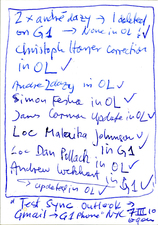 2 x andré dazy → 1 deleted
on G1 → None in OL ✓
Christoph Hamer correction
in OL ✓
André dazy in OL ✓
Simon in OL ✓
James Corman update in OL ✓
Loc Malenika Johnson ✓
Loc Dan Pollack in G1 ✓
Andrew Lockhart in G1 ✓
→ updated in OL ✓
"Test Sync Outlook →
Gmail → G1 Phone" NYC 7 III 10